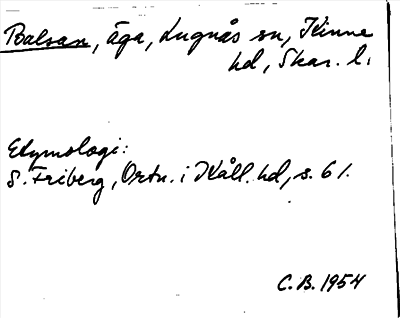 Balsan, äga, Lugnås sn, Kinne
hd, Skar. l.
Etymologi:
S. Friberg, Ortn. i Kåll. hd, s. 61.
C.B. 1954